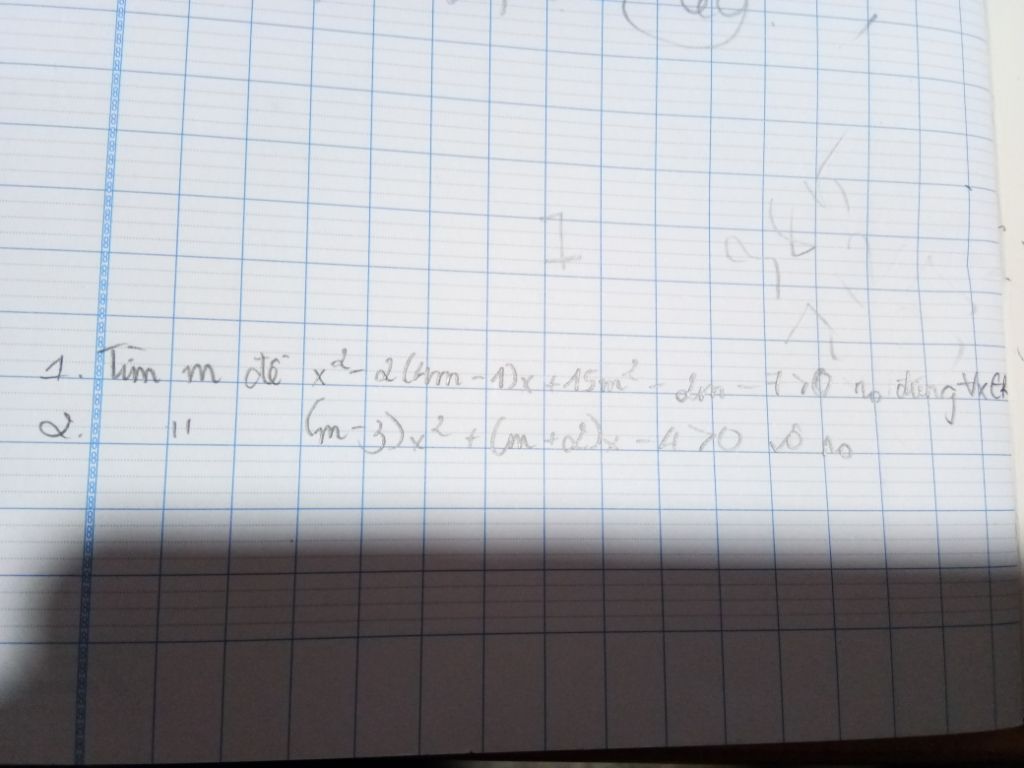 1. Tìm m để x² - 2(4m - 1)x + 15m² - 2m - 7 > 0 no đúng ∀x ∈
2. " (m - 3)x² + (m + 2)x - 4 > 0 vô no